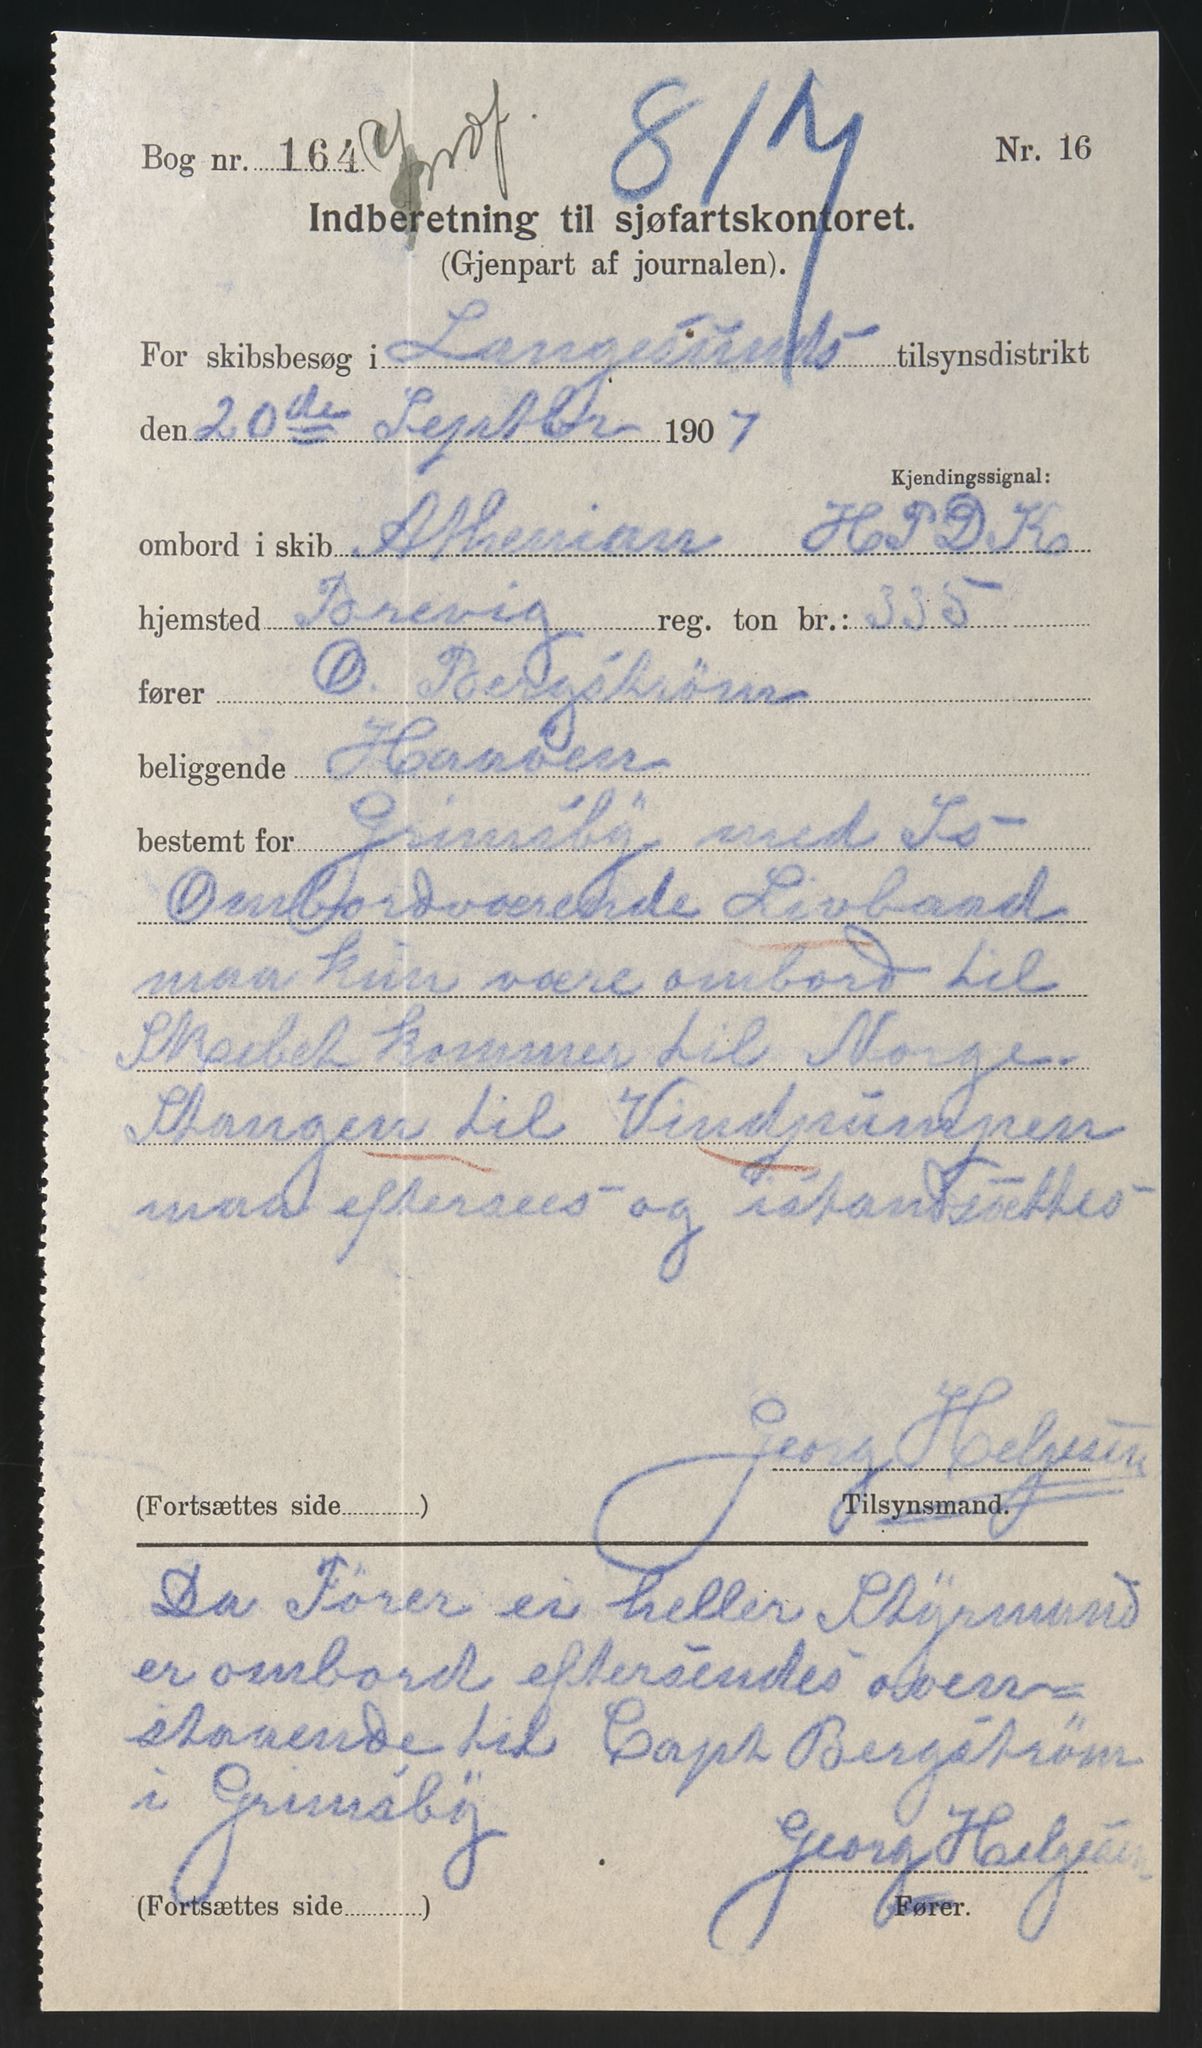 Bog nr. 164
817
Nr. 16
Indberetning til sjøfartskontoret.
(Gjenpart af journalen).
For skibsbesøg i Langesunds tilsynsdistrikt
den 20de Septbr 1907
Kjendingssignal:
ombord i skib Athenian HPDK
hjemsted Brevig reg. ton br.: 335
fører O. Bergström
beliggende Haaven
bestemt for Grimsby med Is
Ombordværende Livbaad
maa kun være ombord til
Skibet kommer til Norge.
Stangen til Vindpumpen
maa eftersees og istandsættes
Georg Helgesen
(Fortsættes side ) Tilsynsmand.
Da Förer ei heller Styrmand
er ombord eftersendes oven=
staaende til Capt Bergström
i Grimsby
Georg Helgesen
(Fortsættes side ) Fører.